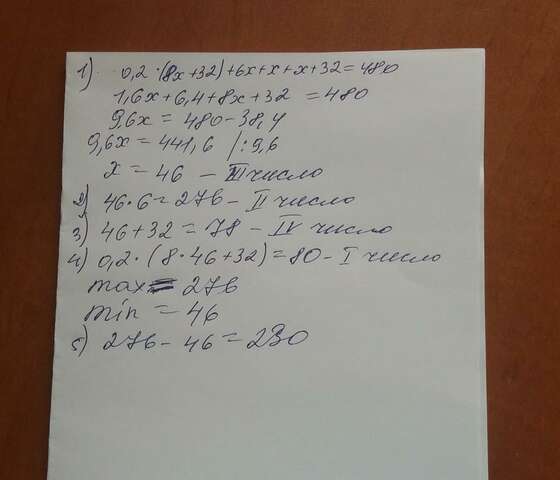 1) 0,2·(8x+32)+6x+x+x+32=480
1,6x+6,4+8x+32 =480
9,6x = 480-38,4
9,6x = 441,6 /:9,6
x = 46 - III число
2) 46·6=276- II число
3) 46+32=78- IV число
4) 0,2·(8·46+32)=80- I число
max = 276
min = 46
5) 276-46=230